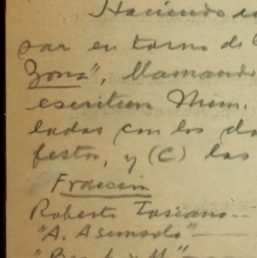 Haciendo
sar en torno de
Zona", llamando
escritura Núm.
ladas con los do
festos, y (C) las
Fracción
Roberto Toscano --
"A. Asemsolo" --